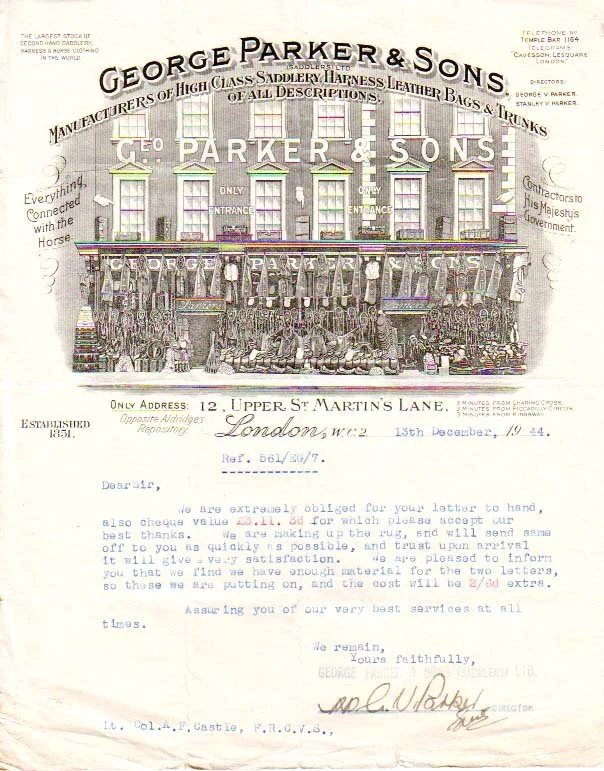 THE LARGEST STOCK OF
SECOND HAND SADDLERY,
HARNESS & HORSE CLOTHING
IN THE WORLD.
TELEPHONE Nº
TEMPLE BAR 1164
TELEGRAMS:
"CAVESSON, LESQUARE
LONDON"
DIRECTORS:
GEORGE V. PARKER.
STANLEY V. PARKER.
GEORGE PARKER & SONS.
(SADDLERS) LTD
MANUFACTURERS OF HIGH CLASS SADDLERY, HARNESS, LEATHER BAGS & TRUNKS
OF ALL DESCRIPTIONS.
GEO. PARKER & SONS
Everything,
Connected
with the
Horse.
ONLY
ENTRANCE
ONLY
ENTRANCE
Contractors to
His Majesty's
Government.
GEORGE PARKER & SONS
ONLY ADDRESS: 12, UPPER ST MARTIN'S LANE,
Opposite Aldridge's
Repository.
3 MINUTES FROM CHARING CROSS.
2 MINUTES FROM PICCADILLY CIRCUS.
5 MINUTES FROM KINGSWAY.
ESTABLISHED
1851.
London, W.C.2. 13th December, 1944.
Ref. 561/EG/7.
Dear Sir,
We are extremely obliged for your letter to hand,
also cheque value £3.11. 3d for which please accept our
best thanks. We are making up the rug, and will send same
off to you as quickly as possible, and trust upon arrival
it will give every satisfaction. We are pleased to inform
you that we find we have enough material for the two letters,
so these we are putting on, and the cost will be 2/6d extra.
Assuring you of our very best services at all
times.
We remain,
Yours faithfully,
GEORGE PARKER & SONS (SADDLERS) LTD.
V. Parker
DIRECTOR
Lt. Col. A.F. Castle, F.R.C.V.S.,